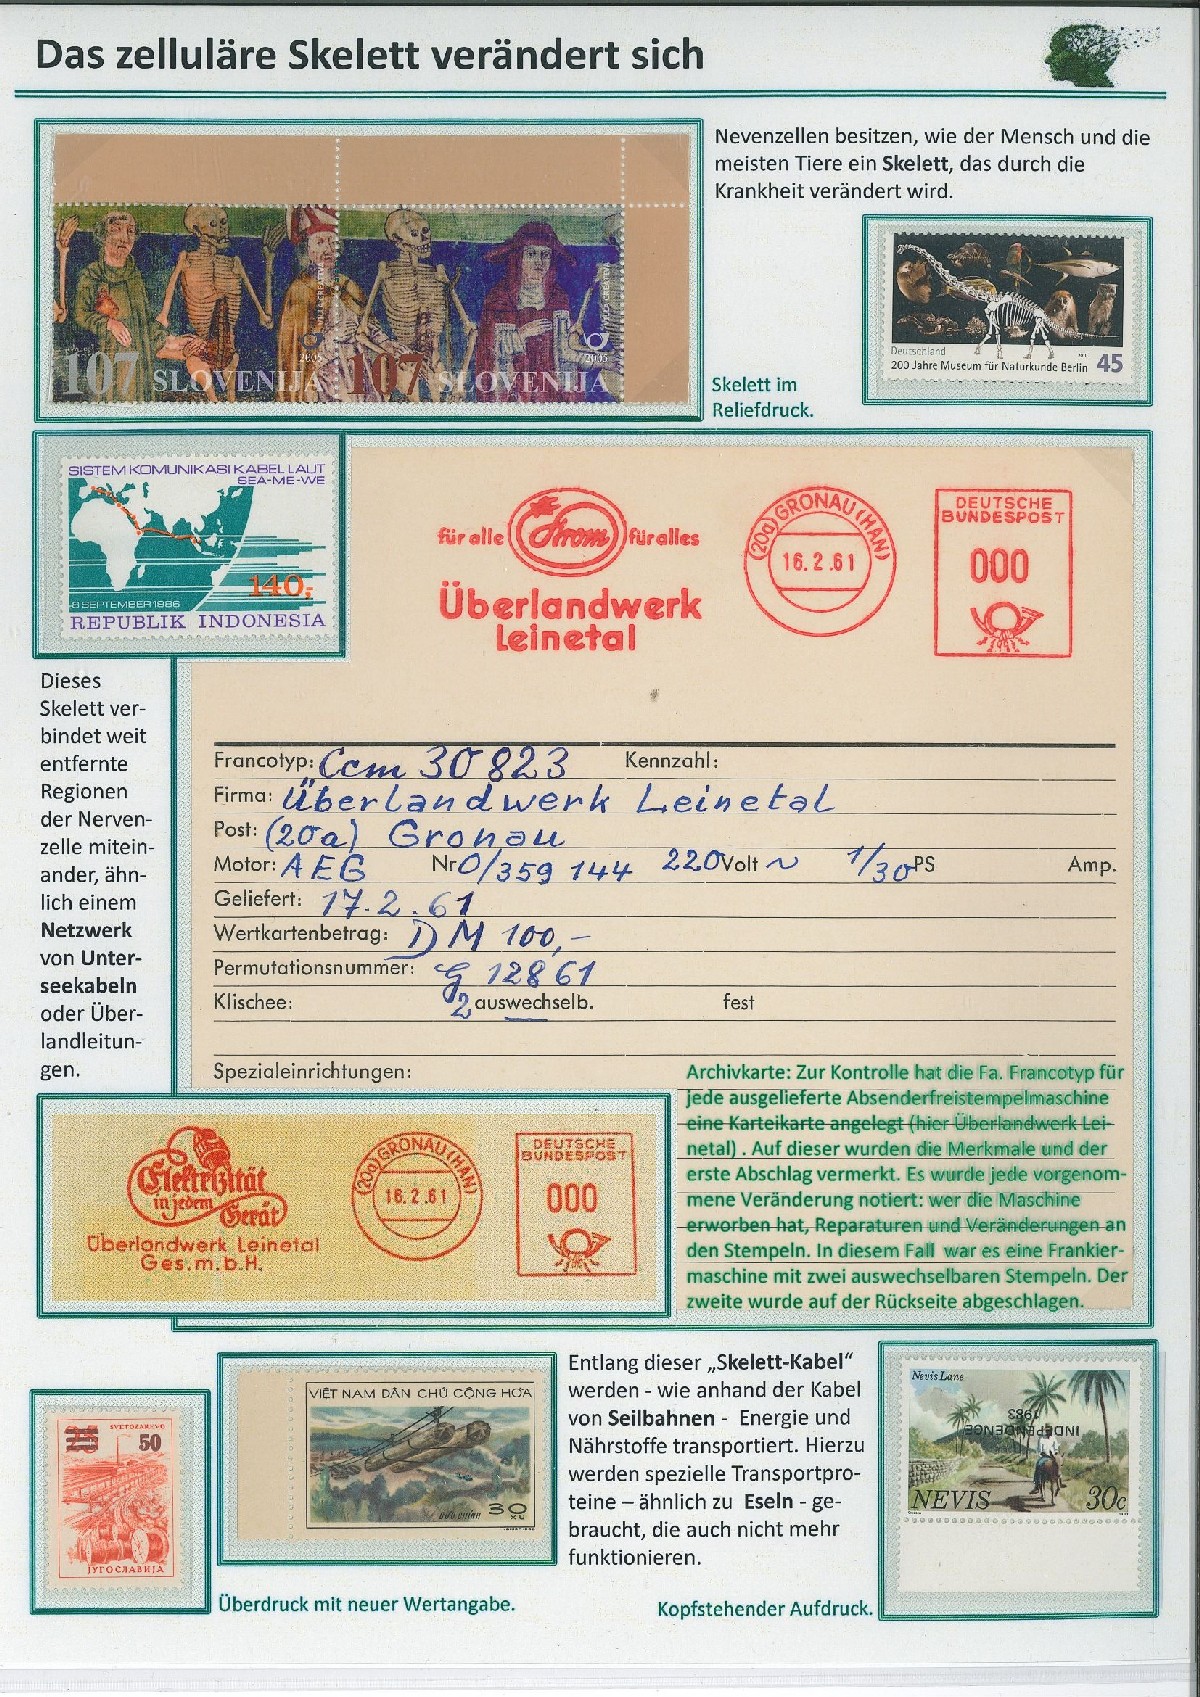 Das zelluläre Skelett verändert sich
Nevenzellen besitzen, wie der Mensch und die
meisten Tiere ein Skelett, das durch die
Krankheit verändert wird.
107 SLOVENIJA
2005
107 SLOVENIJA
2005
Deutschland
200 Jahre Museum für Naturkunde Berlin 45
Skelett im
Reliefdruck.
SISTEM KOMUNIKASI KABEL LAUT
SEA-ME-WE
140,-
8 SEPTEMBER 1986
REPUBLIK INDONESIA
für alle Strom für alles
Überlandwerk
Leinetal
(20a) GRONAU (HAN)
16.2.61
DEUTSCHE
BUNDESPOST
000
Dieses
Skelett ver-
bindet weit
entfernte
Regionen
der Nerven-
zelle mitein-
ander, ähn-
lich einem
Netzwerk
von Unter-
seekabeln
oder Über-
landleitun-
gen.
Francotyp: Ccm 30823 Kennzahl:
Firma: Überlandwerk Leinetal
Post: (20a) Gronau
Motor: AEG Nr 0/359 144 220 Volt ~ 1/30 PS Amp.
Geliefert: 17.2.61
Wertkartenbetrag: DM 100,-
Permutationsnummer: G 12861
Klischee: 2 auswechselb. fest
Spezialeinrichtungen:
Archivkarte: Zur Kontrolle hat die Fa. Francotyp für
jede ausgelieferte Absenderfreistempelmaschine
eine Karteikarte angelegt (hier Überlandwerk Lei-
netal) . Auf dieser wurden die Merkmale und der
erste Abschlag vermerkt. Es wurde jede vorgenom-
mene Veränderung notiert: wer die Maschine
erworben hat, Reparaturen und Veränderungen an
den Stempeln. In diesem Fall war es eine Frankier-
maschine mit zwei auswechselbaren Stempeln. Der
zweite wurde auf der Rückseite abgeschlagen.
Elektrizität
in jedem
Gerät
Überlandwerk Leinetal
Ges.m.b.H.
(20a) GRONAU (HAN)
16.2.61
DEUTSCHE
BUNDESPOST
000
Entlang dieser „Skelett-Kabel“
werden - wie anhand der Kabel
von Seilbahnen - Energie und
Nährstoffe transportiert. Hierzu
werden spezielle Transportpro-
teine – ähnlich zu Eseln - ge-
braucht, die auch nicht mehr
funktionieren.
SVETOZAREVO
25 50
ЈУГОСЛАВИЈА
VIỆT NAM DÂN CHỦ CỘNG HÒA
30
XU
Nevis Lane
INDEPENDENCE
1983
NEVIS 30c
Überdruck mit neuer Wertangabe.
Kopfstehender Aufdruck.